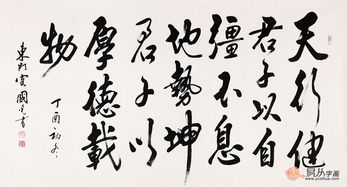 天行健
君子以自
彊不息
地勢坤
君子以
厚德載
物
丁酉初冬
易从字画